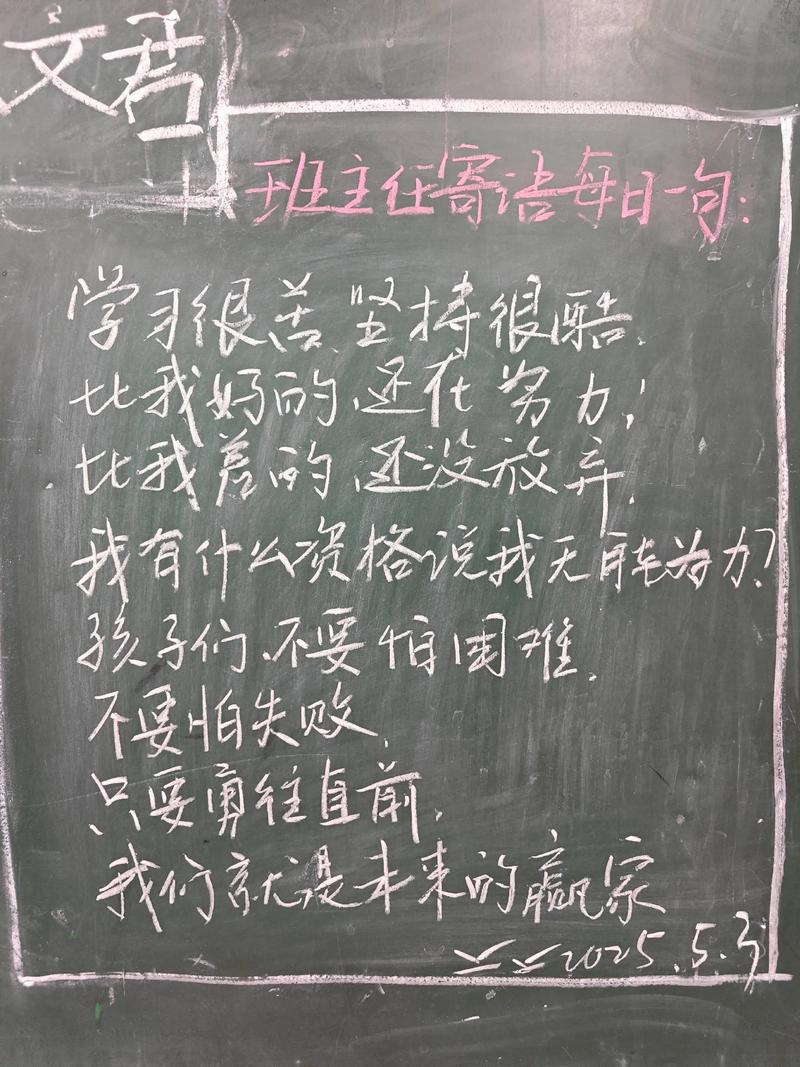 文君
班主任寄语每日一句:
学习很苦,坚持很酷,
比我好的,还在努力;
比我差的,还没放弃,
我有什么资格说我无能为力?
孩子们,不要怕困难,
不要怕失败,
只要勇往直前,
我们就是未来的赢家
2025.5.3